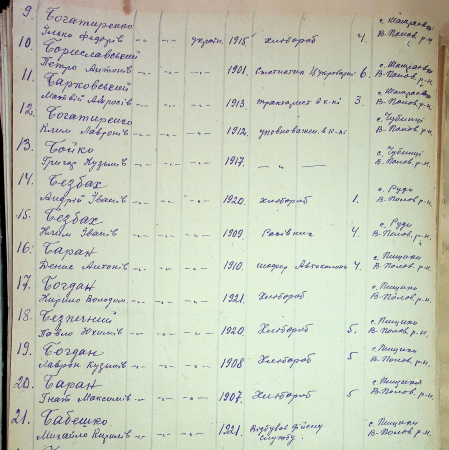 9. Богатиренко
Ілько Федорів -"- -"- україн. 1915 хлібороб 4. с. Шамраєвка
В-Полов. р-н.
10. Бориславський
Петро Антонів -"- -"- -"- 1901. Статистик Цукроварні 6. с. Шамраєвка
В-Полов. р-н.
11. Барковський
Матвій -"- -"- -"- 1913. тракторист 3. с. Шамраєвка
В-Полов. р-н.
12. Богатиренко
Клим Лавронів -"- -"- -"- 1912. уповноважен. с. Чубинці
В-Полов. р-н.
13. Бойко
Григор Кузьмів -"- -"- -"- 1917. -"- с. Чубинці
В-Полов. р-н.
14. Безбах
Андрій Іванів -"- -"- -"- 1920. хлібороб 1. с. Руди
В-Полов. р-н.
15. Безбах
Юхим Іванів -"- -"- -"- 1909. 4. с. Руди
В-Полов. р-н.
16. Баран
Денис Антонів -"- -"- -"- 1910. шофер Автоколони 4. с. Пищики
В-Полов. р-н.
17. Богдан
Кирило Володим. -"- -"- -"- 1921. Хлібороб с. Пищики
В-Полов. р-н.
18. Безпечний
Павло Юхимів -"- -"- -"- 1920. Хлібороб 5. с. Пищики
В-Полов. р-н.
19. Богдан
Лаврін Кузьмів -"- -"- -"- 1908 Хлібороб 5 с. Пищики
В-Полов. р-н.
20. Баран
Гнат Максимів -"- -"- -"- 1907. Хлібороб 5 с. Пищики
В-Полов. р-н.
21. Бабешко
Михайло Кирилів -"- -"- -"- 1921. Відбував дійсну
службу. с. Пищики
В-Полов. р-н.